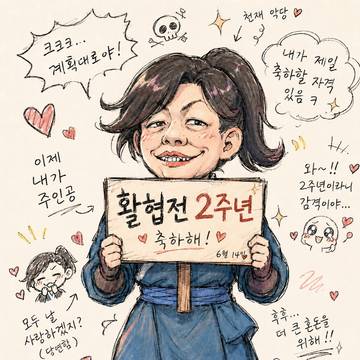 크크크...
계획대로야!
천재 악당
내가 제일
축하할 자격
있음 ㅋ
이제
내가
주인공
와~!!
2주년이라니
감격이야...
활협전 2주년
축하해!
6월 14일
모두 날
사랑하겠지?
(당연함)
후후...
더 큰 혼돈을
위해!!